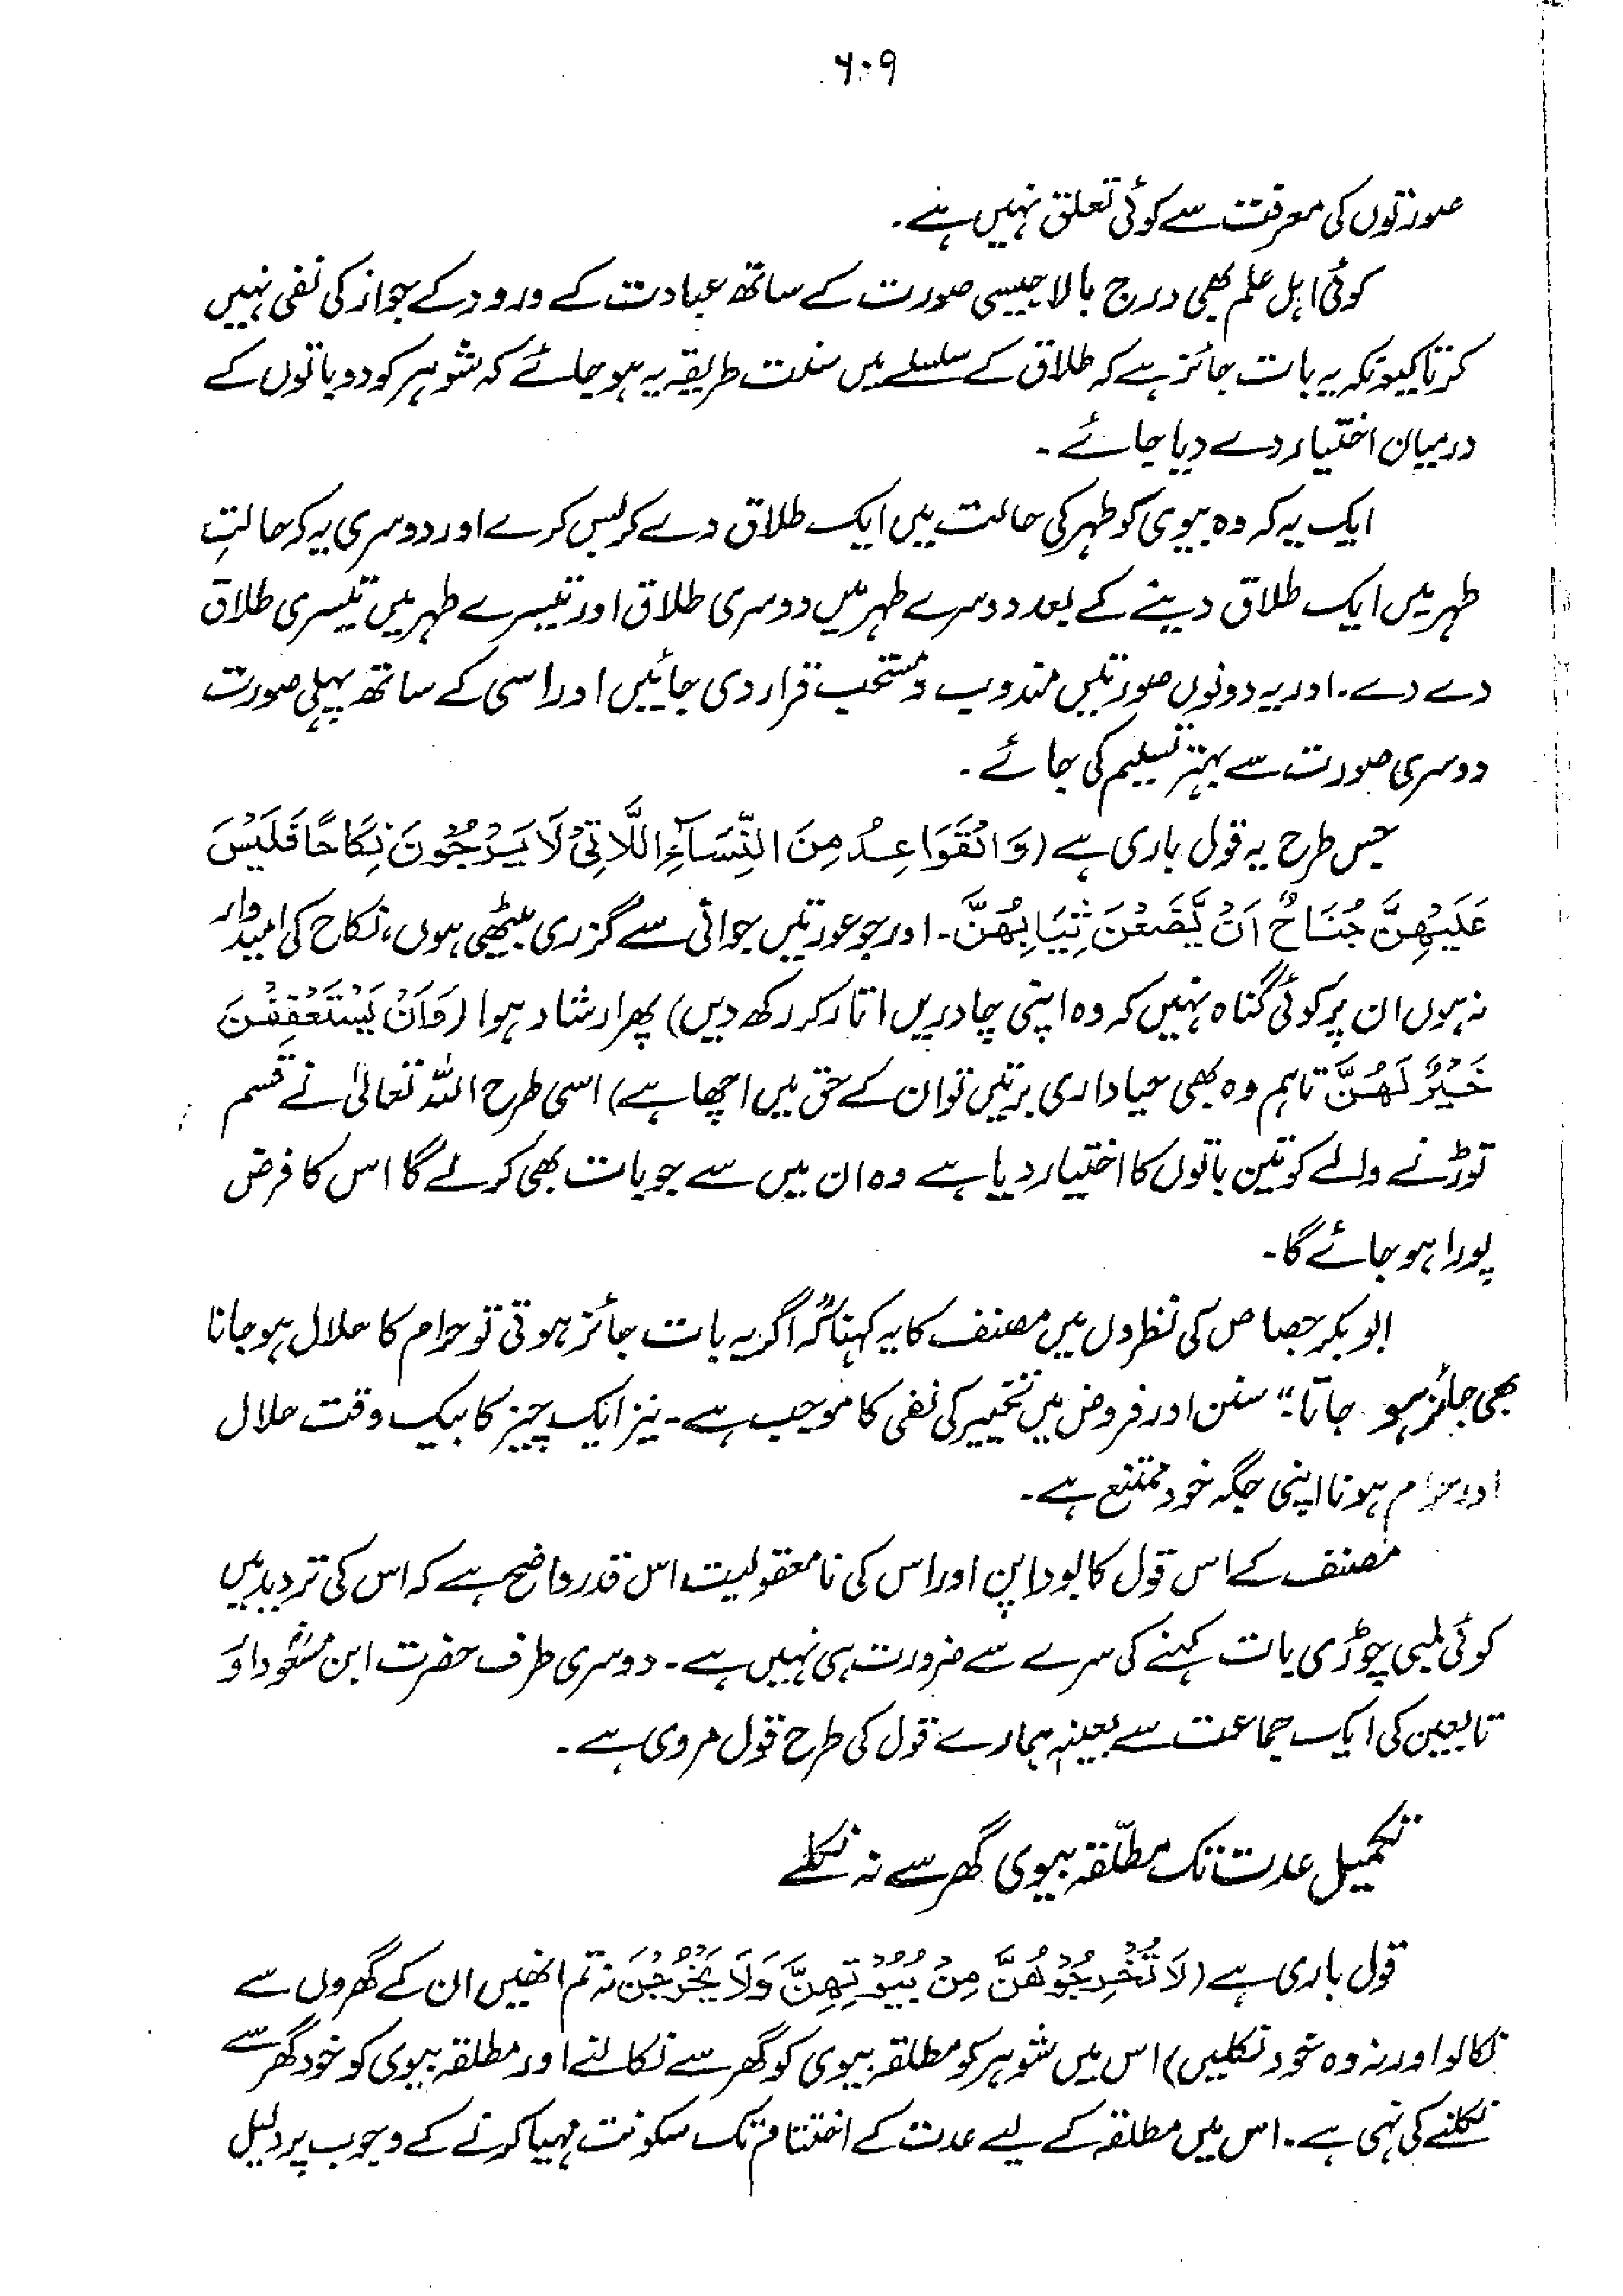 ۶۰۹
صورتوں کی معرفت سے کوئی تعلق نہیں ہے۔
کوئی اہل علم بھی درج بالا جیسی صورت کے ساتھ عبادت کے ورود کے جواز کی نفی نہیں
کرتا کیونکہ یہ بات جائز ہے کہ طلاق کے سلسلے میں سنت طریقہ یہ ہو جائے کہ شوہر کو دو باتوں کے
درمیان اختیار دے دیا جائے۔
ایک یہ کہ وہ بیوی کو طہر کی حالت میں ایک طلاق دے کر بس کرے اور دوسری یہ کہ حالتِ
طہر میں ایک طلاق دینے کے بعد دوسرے طہر میں دوسری طلاق اور تیسرے طہر میں تیسری طلاق
دے دے۔ اور یہ دونوں صورتیں مندوب و مستحب قرار دی جائیں اور اسی کے ساتھ پہلی صورت
دوسری صورت سے بہتر تسلیم کی جائے۔
جس طرح یہ قول باری ہے (وَالْقَوَاعِدُ مِنَ النِّسَآءِ اللَّاتِیْ لَا یَرْجُوْنَ نِکَاحًا فَلَیْسَ
عَلَیْهِنَّ جُنَاحٌ اَنْ یَّضَعْنَ ثِیَابَهُنَّ۔ اور جو عورتیں جوانی سے گزری بیٹھی ہوں، نکاح کی امیدوار
نہ ہوں ان پر کوئی گناہ نہیں کہ وہ اپنی چادریں اتار کر رکھ دیں) پھر ارشاد ہوا (وَاَنْ یَسْتَعْفِفْنَ
خَیْرٌ لَهُنَّ تاہم وہ بھی حیاداری برتیں تو ان کے حق میں اچھا ہے) اسی طرح اللہ تعالیٰ نے قسم
توڑنے والے کو تین باتوں کا اختیار دیا ہے وہ ان میں سے جو بات بھی کرلے گا اس کا فرض
پورا ہو جائے گا۔
ابو بکر جصاص کی نظروں میں مصنف کا یہ کہنا کہ "اگر یہ بات جائز ہوتی تو حرام کا حلال ہو جانا
بھی جائز ہو جاتا۔" سنن اور فروض میں تخییر کی نفی کا موجب ہے۔ نیز ایک چیز کا بیک وقت حلال
اور حرام ہونا اپنی جگہ خود ممتنع ہے۔
مصنف کے اس قول کا بودا پن اور اس کی نامعقولیت اس قدر واضح ہے کہ اس کی تردید میں
کوئی لمبی چوڑی بات کہنے کی سرے سے ضرورت ہی نہیں ہے۔ دوسری طرف حضرت ابن مسعودؓ اور
تابعین کی ایک جماعت سے بعینہٖ ہمارے قول کی طرح قول مروی ہے۔
تکمیل عدت تک مطلّقہ بیوی گھر سے نہ نکلے
قول باری ہے (لَا تُخْرِجُوْهُنَّ مِنْ بُیُوْتِهِنَّ وَلَا یَخْرُجْنَ نہ تم انھیں ان کے گھروں سے
نکالو اور نہ وہ خود نکلیں) اس میں شوہر کو مطلقہ بیوی کو گھر سے نکالنے اور مطلقہ بیوی کو خود گھر سے
نکلنے کی نہی ہے۔ اس میں مطلقہ کے لیے عدت کے اختتام تک سکونت مہیا کرنے کے وجوب پر دلیل